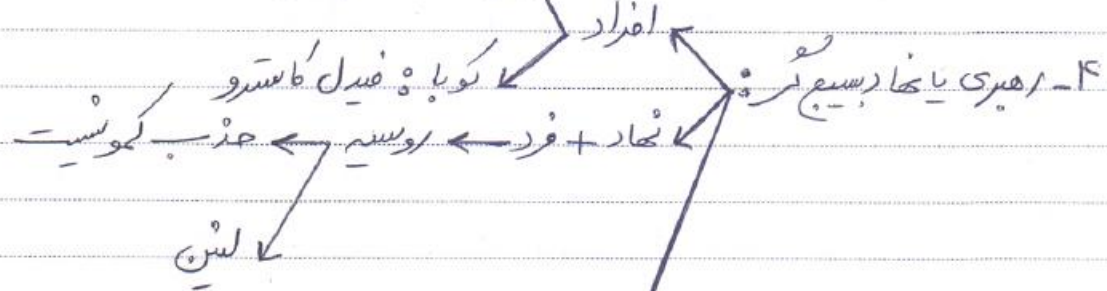 افراد
۴- رهبری یا نهاد بسیج گر:
کوبا: فیدل کاسترو
نهاد + فرد ← روسیه ← حذب کمونیست
لنین